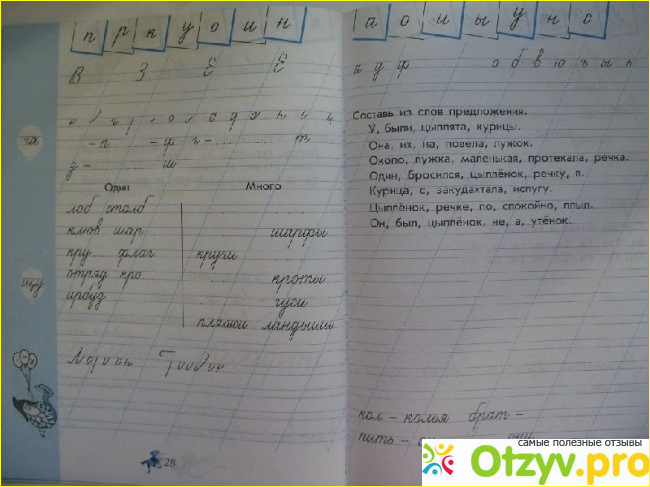 п р к у о и н
В З Е Е
- п ... - ф г - ... т
з - ... ш
Один Много
лоб столб
клюв шар... шарфы
кру... флаг круги
отряд кро... кроты
арбуз гуси
пляжи ландыши
28
а о и ы у н с
а д ф о б в ю ъ ы ь
Составь из слов предложения.
У, были, цыплята, курицы.
Она, их, на, повела, лужок.
Около, лужка, маленькая, протекала, речка.
Один, бросился, цыплёнок, речку, в.
Курица, с, закудахтала, испугу.
Цыплёнок, речке, по, спокойно, плыл.
Он, был, цыплёнок, не, а, утёнок.
кол - колья брат -
пить -
самые полезные отзывы
Otzyv.pro